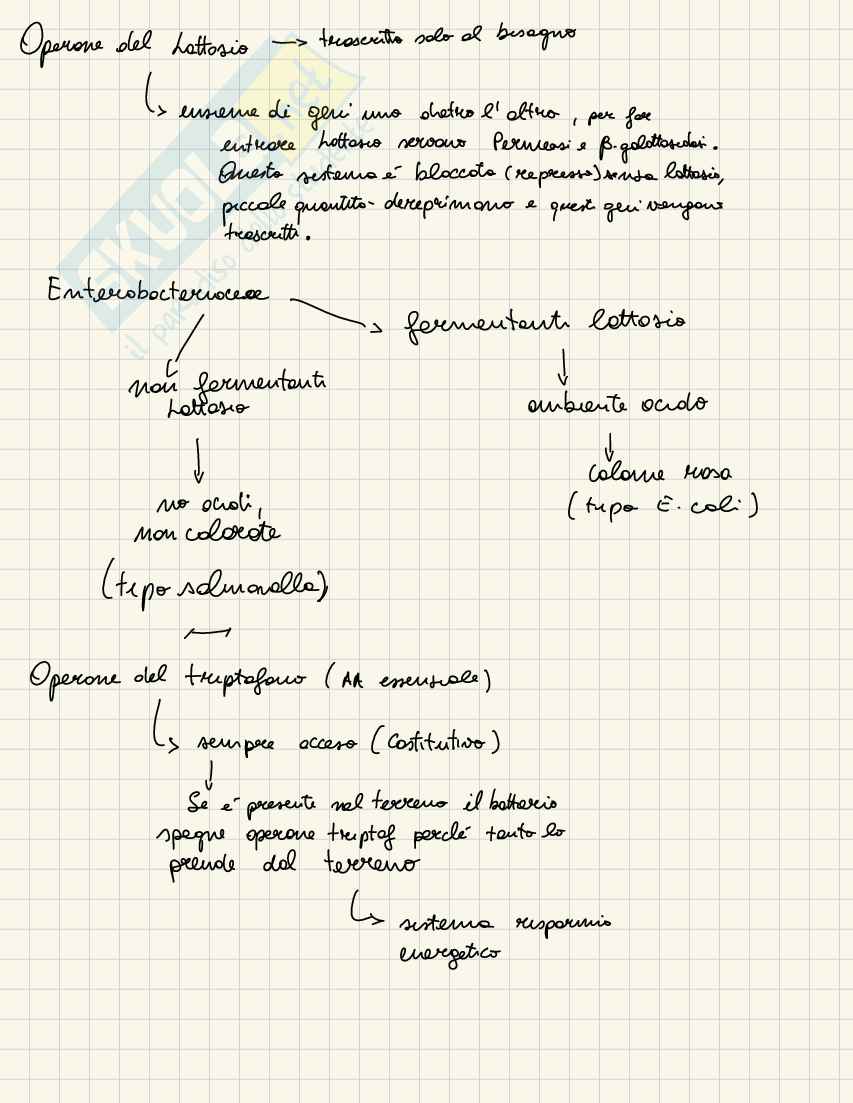 Operone del Lattosio → trascritto solo al bisogno
↳ insieme di geni uno dietro l'altro, per far
entrare Lattosio servono Permeasi e β-galattosidasi.
Questo sistema è bloccato (represso) senza lattosio,
piccole quantità dereprimono e questi geni vengono
trascritti.
SKUOLA.net
il paradiso dello studente
Enterobacteriaceae
fermentanti lattosio
non fermentanti
Lattosio
ambiente acido
colonie rosa
(tipo E. coli)
no acidi,
non colorate
(tipo salmonella)
Operone del triptofano (AA essenziale)
↳ sempre acceso (costitutivo)
Se è presente nel terreno il batterio
spegne operone triptof perché tanto lo
prende dal terreno
↳ sistema risparmio
energetico